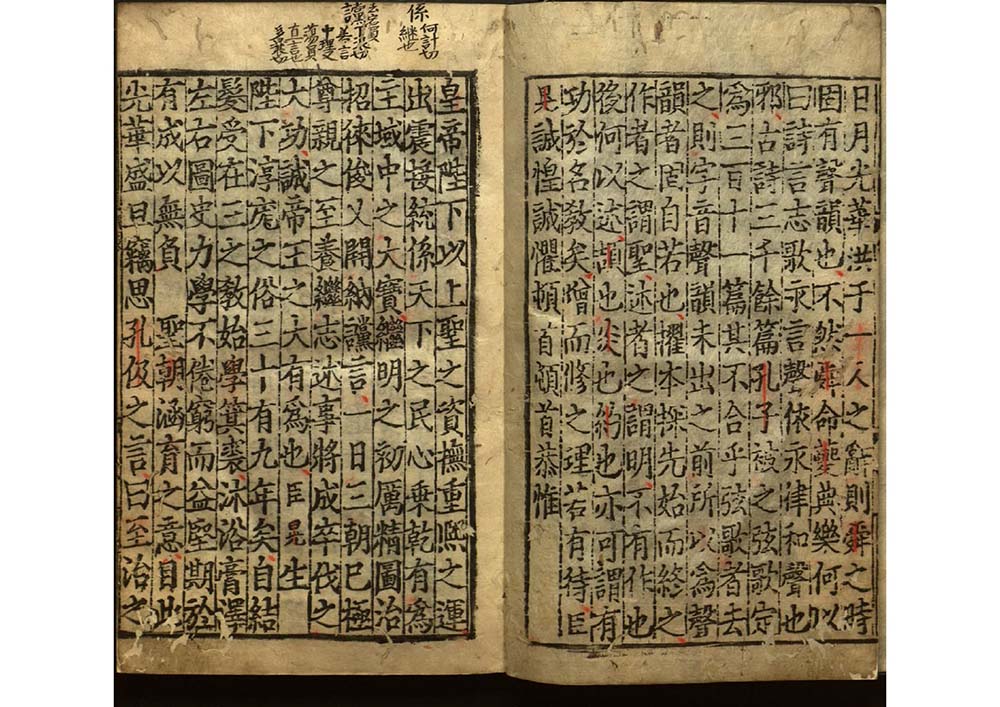 日月光華洪于一人之辭則舜之時
固有聲韻也不然舜命夔典樂何以
曰詩言志歌永言聲依永律和聲也
邪古詩三千餘篇孔子被之弦歌定
爲三百十一篇其不合乎弦歌者去
之則字音聲韻未出之前所以爲聲
韻者固自若也擢本探先始而終之
作者之謂聖述者之謂明不有作也
後何以述頡也炎也約也亦可謂有
功於名敎矣增而修之理若有待臣
晃誠惶誠懼頓首頓首恭惟
係
何計切
繼也
讜
善言
直言也
皇帝陛下以上聖之資撫重熙之運
出震握統係天下之民心乘乾有爲
主域中之大寶繼明之初厲精圖治
招徠俊乂闢納讜言一日三朝已極
尊親之至養繼志述事將成卒伐之
大功誠帝王之大有爲也臣晃生
陛下淳厖之俗三十有九年矣自結
髮受在三之敎始學箕裘沐浴膏澤
左右圖史力學不倦窮而益堅期於
有成以無負 聖朝涵育之意目此
光華盛旦竊思孔伋之言曰至治之